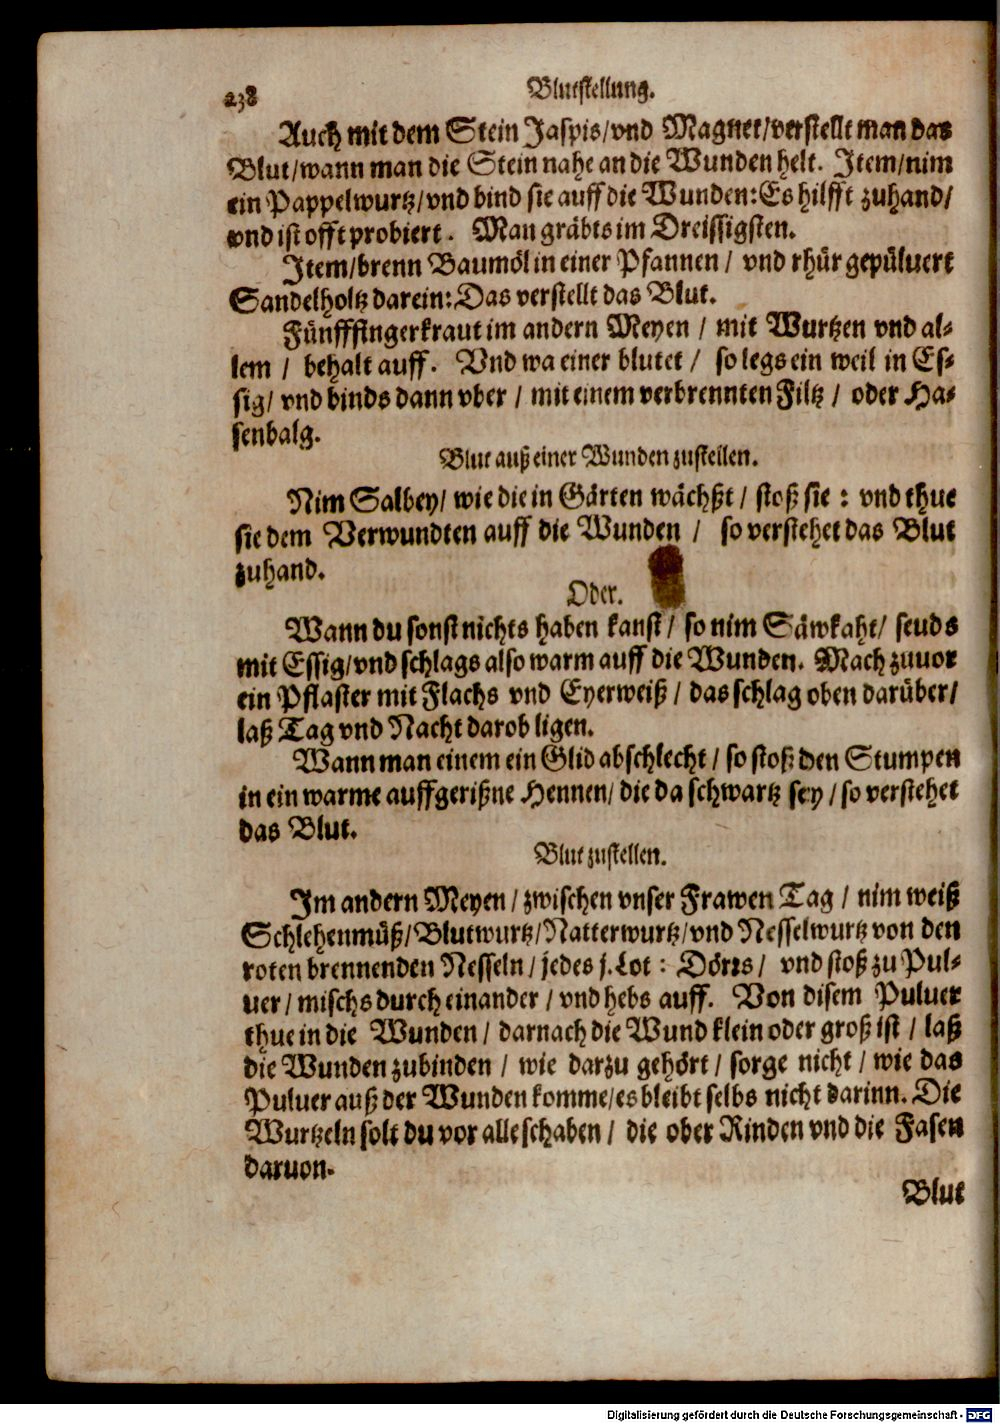 238
Blutstellung.
Auch mit dem Stein Jaspis/vnd Magnet/verstellt man das
Blut/wann man die Stein nahe an die Wunden helt. Item/nim
ein Pappelwurtz/vnd bind sie auff die Wunden: Es hilfft zuhand/
vnd ist offt probiert. Man gräbts im Dreissigsten.
Item/brenn Baumöl in einer Pfannen / vnd rhür gepüluert
Sandelholtz darein: Das verstellt das Blut.
Fünfffingerkraut im andern Meyen / mit Wurtzen vnd al-
lem / behalt auff. Vnd wa einer blutet / so legs ein weil in Es-
sig/ vnd binds dann vber / mit einem verbrennten Filtz / oder Ha-
senbalg.
Blut auß einer Wunden zustellen.
Nim Salbey/ wie die in Gärten wächßt / stoß sie : vnd thue
sie dem Verwundten auff die Wunden / so verstehet das Blut
zuhand.
Oder.
Wann du sonst nichts haben kanst / so nim Säwkaht/ seuds
mit Essig/vnd schlags also warm auff die Wunden. Mach zuuor
ein Pflaster mit Flachs vnd Eyerweiß / das schlag oben darüber/
laß Tag vnd Nacht darob ligen.
Wann man einem ein Glid abschlecht / so stoß den Stumpen
in ein warme auffgerißne Hennen/ die da schwartz sey / so verstehet
das Blut.
Blut zustellen.
Im andern Meyen / zwischen vnser Frawen Tag / nim weiß
Schlehenmüß/Blutwurtz/Natterwurtz/vnd Nesselwurtz von den
roten brennenden Nesseln / jedes j. Lot : Dörrs / vnd stoß zu Pul-
uer / mischs durch einander / vnd hebs auff. Von disem Puluer
thue in die Wunden / darnach die Wund klein oder groß ist / laß
die Wunden zubinden / wie darzu gehört / sorge nicht / wie das
Puluer auß der Wunden komme/es bleibt selbs nicht darinn. Die
Wurtzeln solt du vor alle schaben / die ober Rinden vnd die Fasen
daruon.
Blut
Digitalisierung gefördert durch die Deutsche Forschungsgemeinschaft - DFG